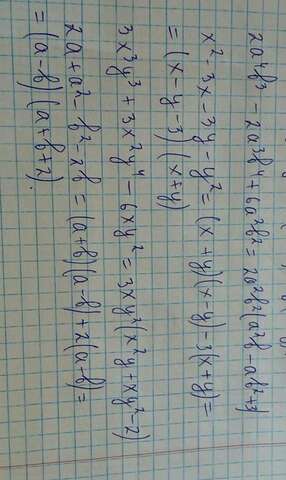 2a⁴b³ - 2a³b⁴ + 6a²b² = 2a²b²(a²b - ab² + 3)
x² - 3x - 3y - y² = (x + y)(x - y) - 3(x + y) =
= (x - y - 3)(x + y)
3x³y³ + 3x²y⁴ - 6xy² = 3xy²(x²y + xy² - 2)
2a + a² - b² - 2b = (a + b)(a - b) + 2(a - b) =
= (a - b)(a + b + 2).